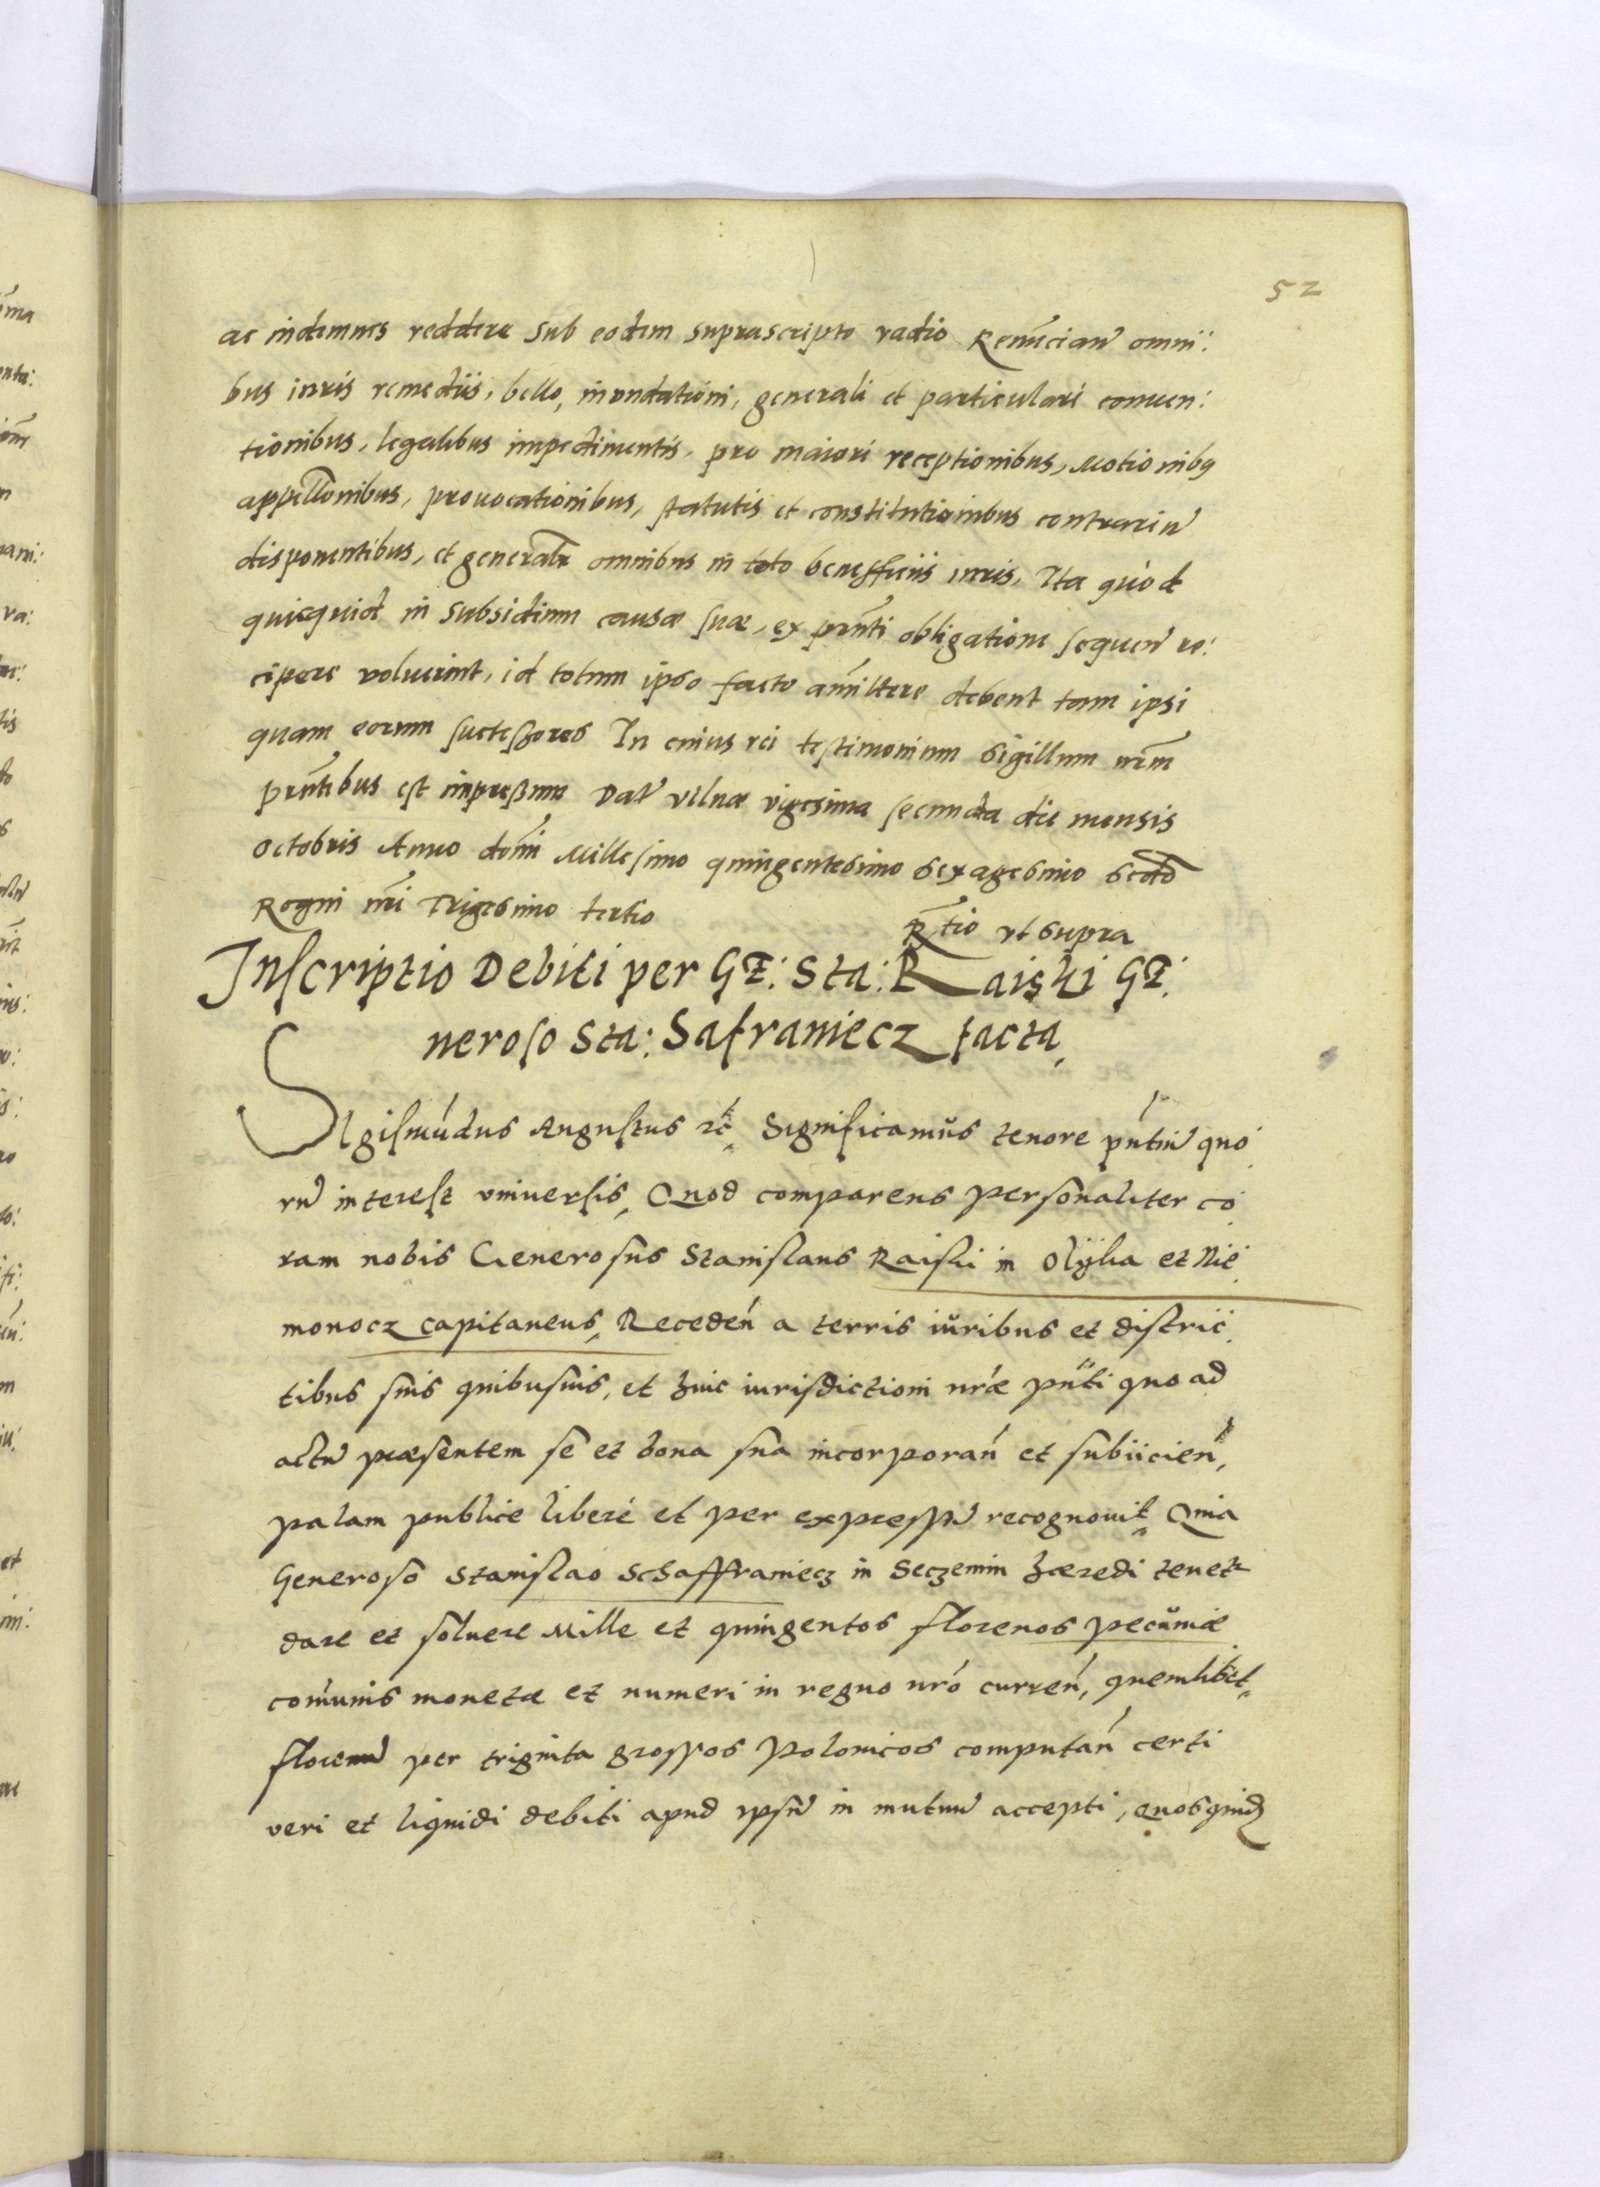 52
ac indemnes reddere sub eodem suprascripto vadio Renu͂cian͂ omni:
bus iuris remediis, bello, inundationi, generali et particulari conuen:
tionibus, legalibus impedimentis, pro maiori receptionibus, Motionibꝫ
appell͂onibus, prouocationibus, statutis et constitutionibus contrariu͂
disponentibus, et generalr͂ omnibus in toto benefficiis iuris, Ita quòd
quicquid in subsidium causæ suæ, ex pn͂ti obligatione sequen͂ re:
cipere voluerint, id totum ipso facto am͂ittere debent tam ipsi
quam eorum successores In cuius rei testimonium sigillum nr͂m
pn͂tibus est impressum Dat͂ vilnæ vigesima secunda die mensis
octobris Anno dom͂i Millesimo quingentesimo sexagesimo sec͂do
Regni nr͂i Trigesimo tertio
R͂tio vt supra
Inscriptio Debiti per GE: Sta: Raiski GE:
neroso Sta: Safraniecz facta,
Sigismu͂dus Augustus ⁊c̃ Significamus tenore pn͂tiu͂ quo
ru͂ interest vniuersis, Quod comparens personaliter co
ram nobis Generosus Stanislaus Raiski in Olijka et Nie
monocz capitaneus, Receden͂ a terris iuribus et districc
tibus suis quibusuis, et huic iurisdictioni nr͂æ pn͂ti quo ad
actu͂ præsentem se et bona sua incorporan͂ et subiicien͂,
palam publice liberè et per expressu͂ recognouit, Quia
Generoso Stanislao Schaffraniecz in Seczemin hæredi tenetr
dare et soluere Mille et quingentos florenos pecuniæ
com͂unis monetæ et numeri in regno nr͂o curren͂, quemlibet
florenu͂ per triginta grossos Polonicos computan͂ certi
veri et liquidi debiti apud ipsu͂ in mutuu͂ accepti, Quosquidꝫ